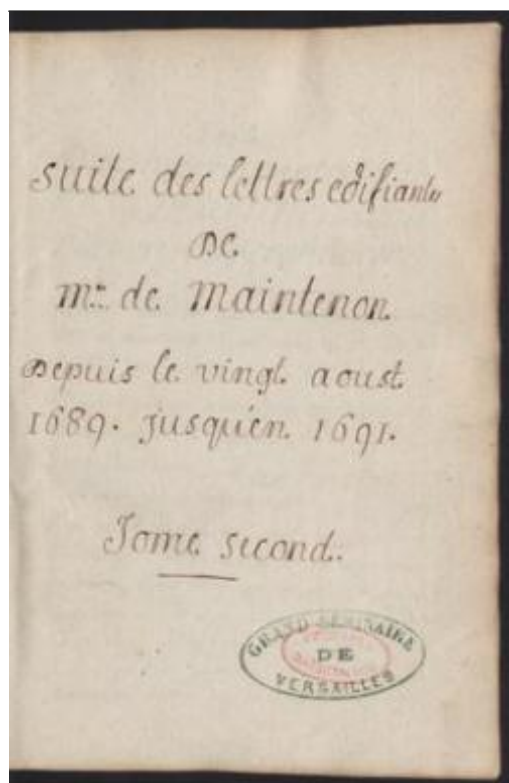 suite des lettres edifiantes
De
me. de Maintenon
Depuis le vingt aoust
1689. jusqu'en 1691.
Tome second.
GRAND SÉMINAIRE
DE
VERSAILLES